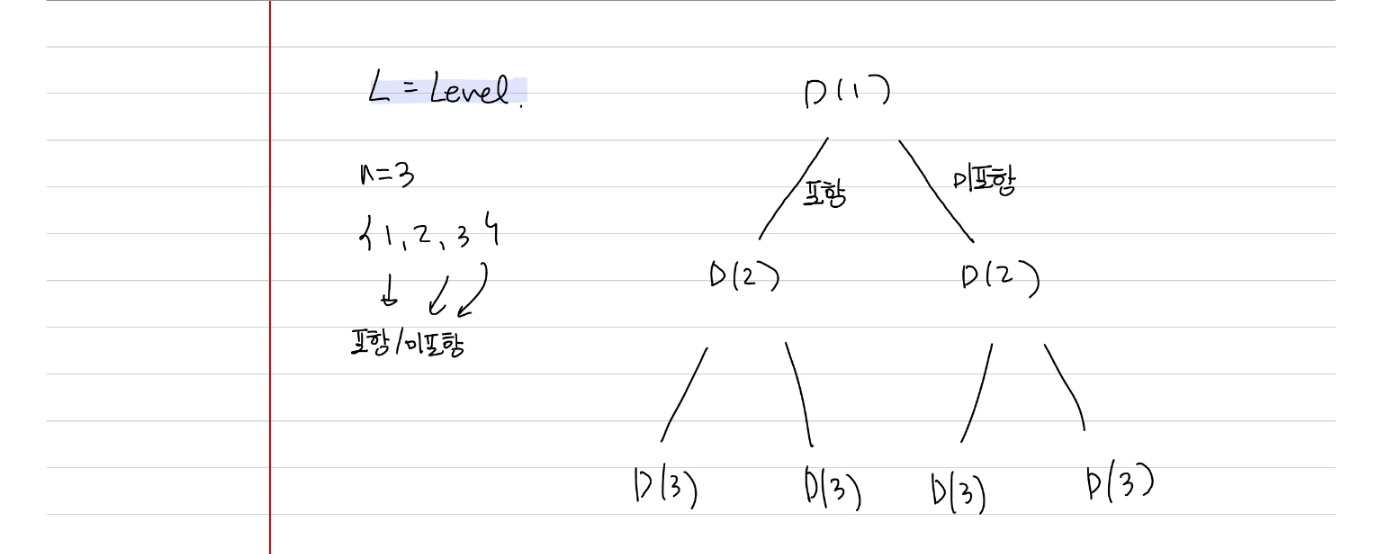 L = Level.
n=3
{1, 2, 3}
포함/미포함
D(1)
포함 미포함
D(2) D(2)
D(3) D(3) D(3) D(3)